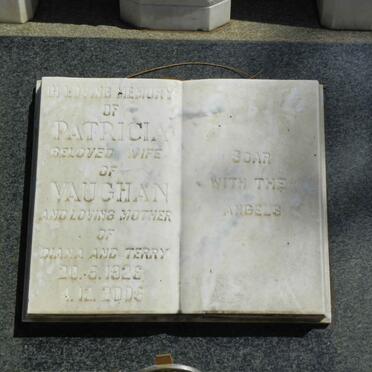 IN LOVING MEMORY
OF
PATRICIA
BELOVED WIFE
OF
VAUGHAN
AND LOVING MOTHER
OF
DIANA AND TERRY
SOAR
WITH THE
ANGELS